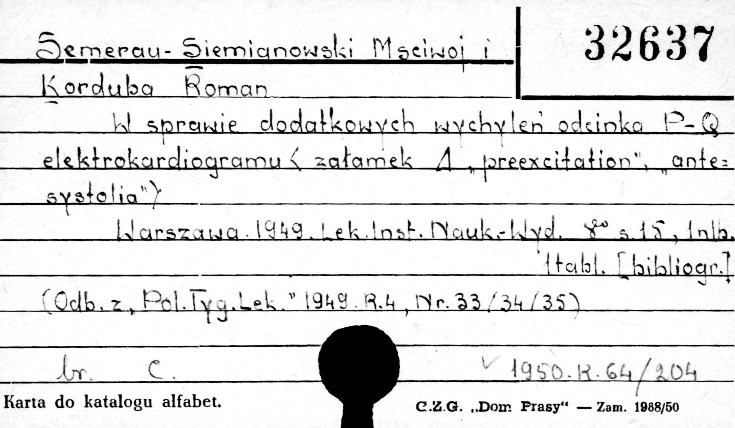 Semerau-Siemianowski Mściwoj i
32637
Korduba Roman
W sprawie dodatkowych wychyleń odcinka P-Q
elektrokardiogramu (załamek Δ „preexcitation", „ante=
systolia")
Warszawa. 1949. Lek. Inst. Nauk.-Wyd. 8° s. 15, 1nlb.
1tabl. [bibliogr.]
(Odb. z „Pol. Tyg. Lek." 1949. R.4, Nr. 33/34/35)
br. C. 1950. K. 64/204
Karta do katalogu alfabet. C.Z.G. „Dom Prasy“ — Zam. 1988/50